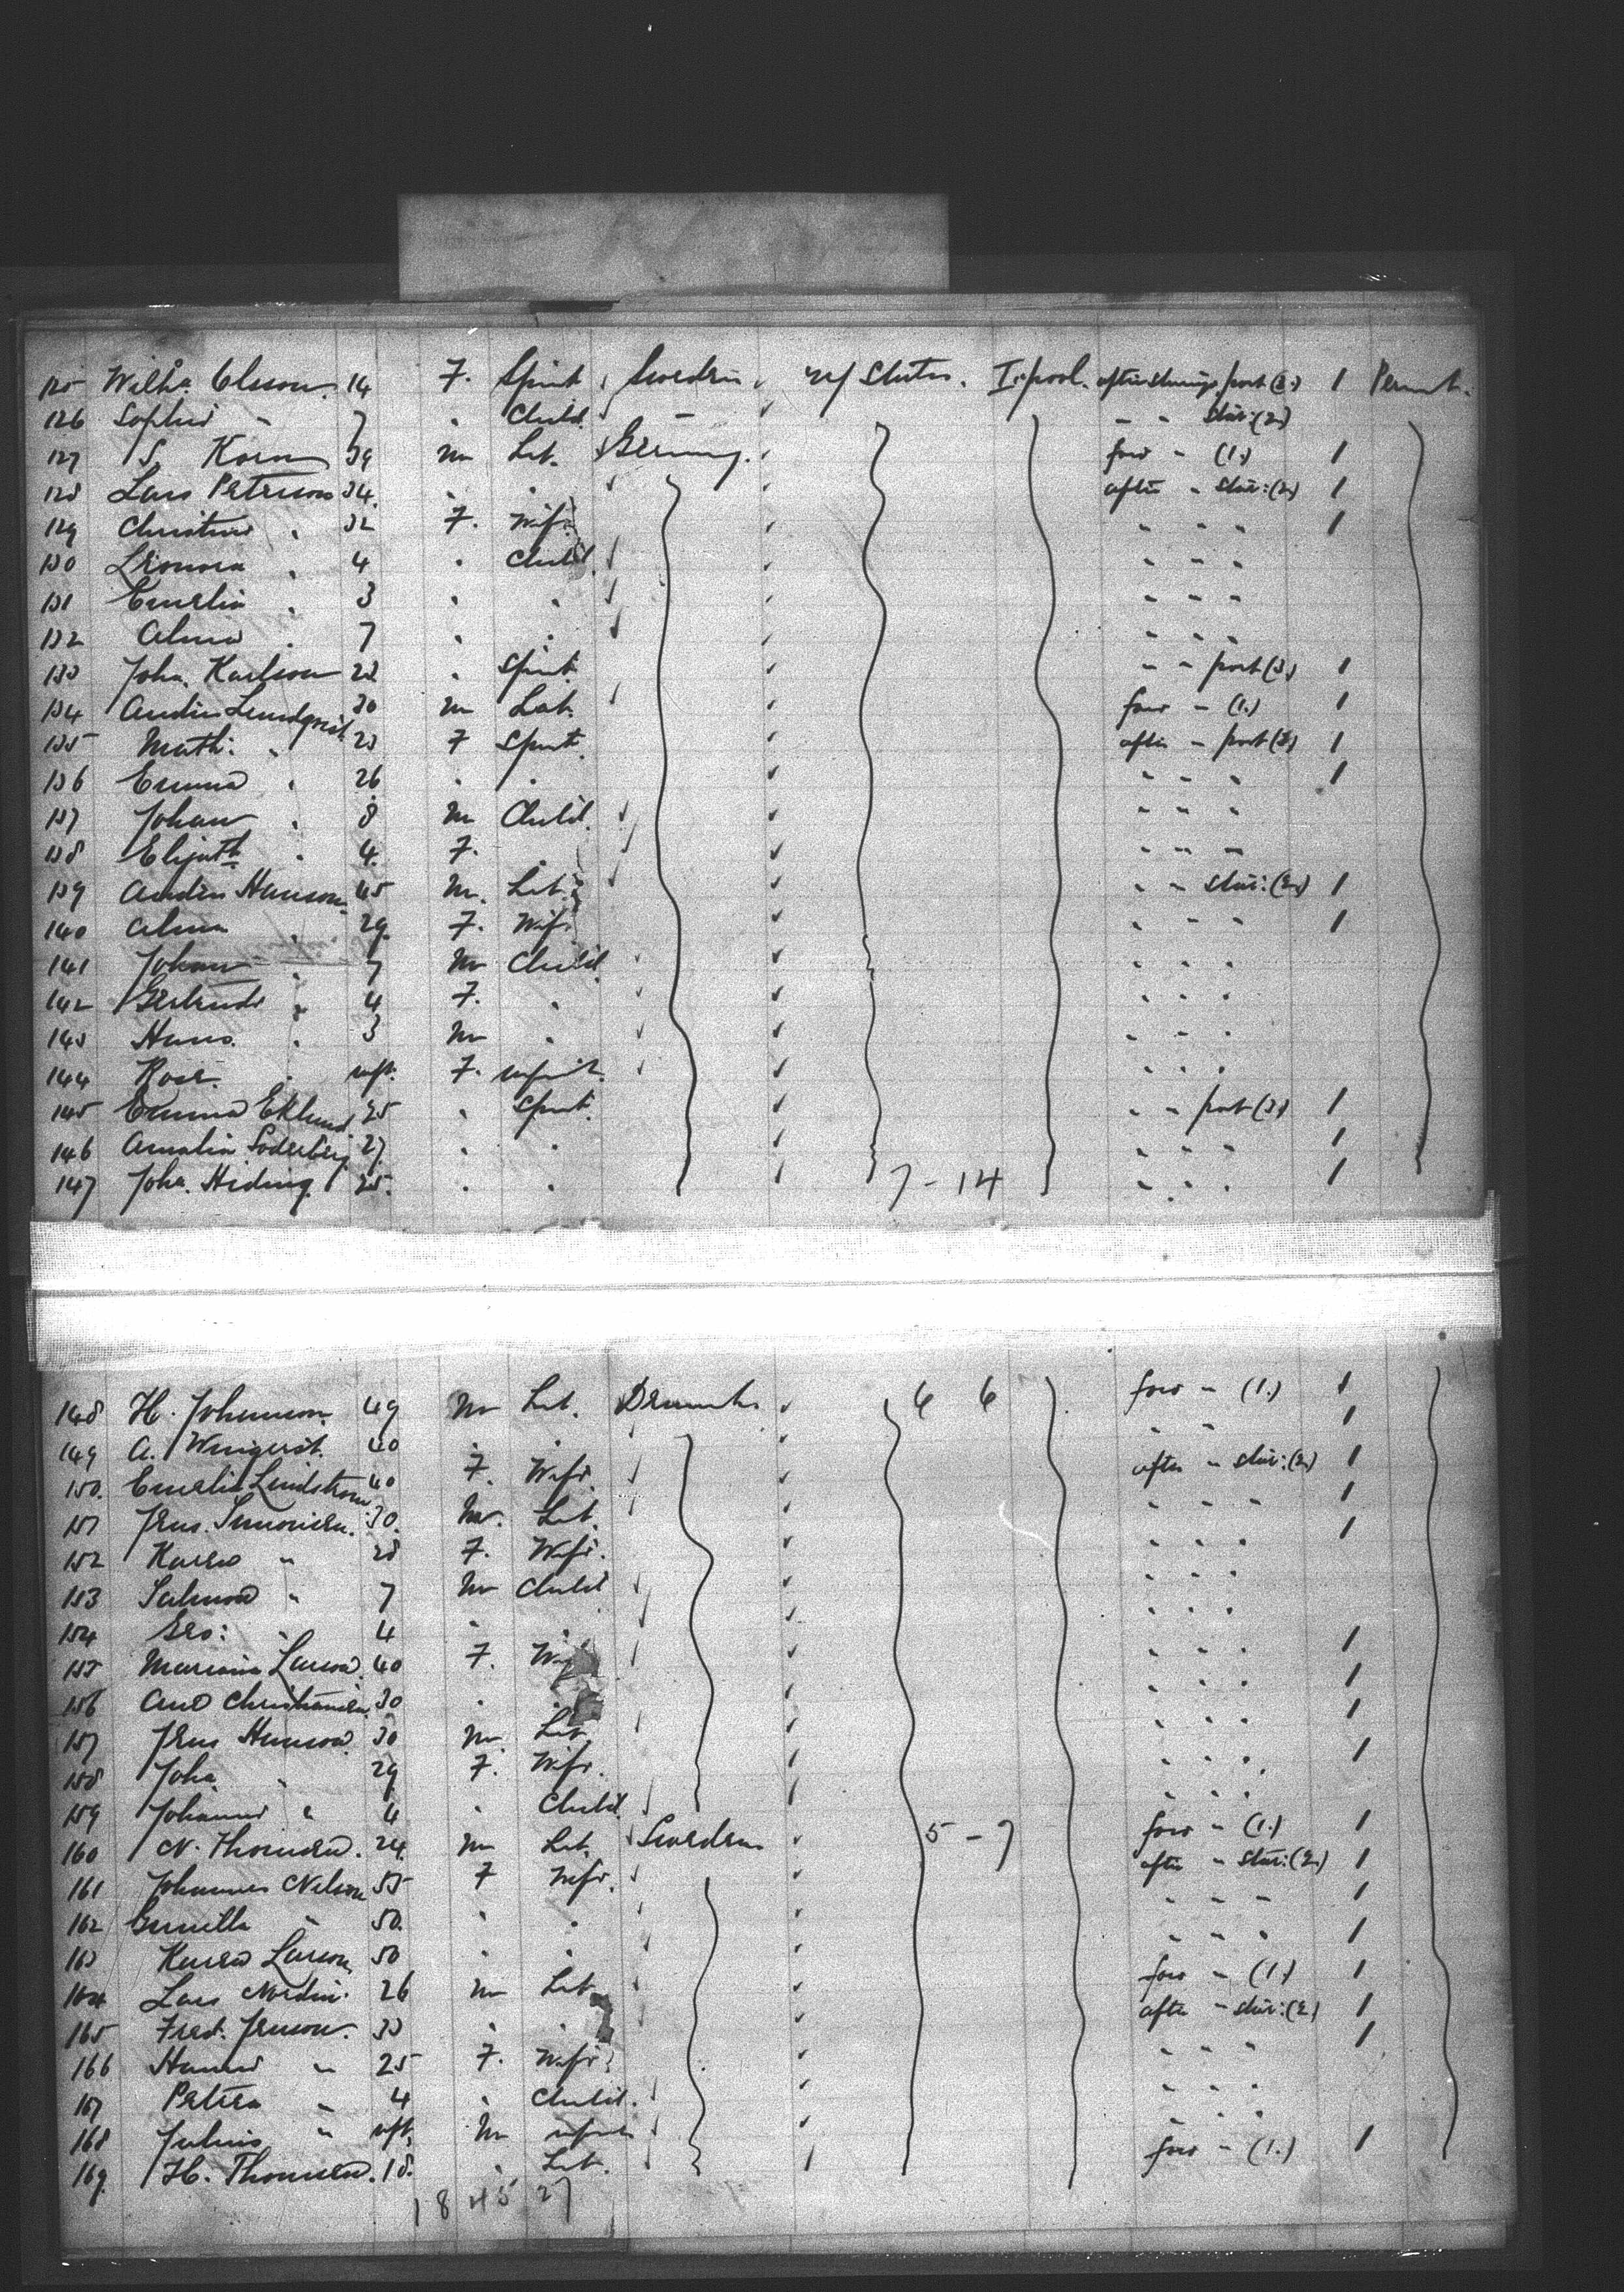 125 Wilha. Olsson. 14 F. Spinst. Sweden U/States. L'pool. after steerage port (3.) 1 Permnt.
126 Sophia " 7 " Child. " " " Star: (2.)
127 S. Korn 39 M Lab. Germany. forw " (1.) 1
128 Lars Peterson 34. " " after " Star: (2.) 1
129 Christina " 32 F. Wife " " " 1
130 Leonora " 4 " Child. " " "
131 Emelia " 3 " " " " "
132 Alma " 7 " " " " "
133 Joha. Karlson 23 " Spinst. " " port (3) 1
134 Andrs Lundqvist 30 M Lab. forw " (1.) 1
135 Math: " 23 F Spinst. after " port (3) 1
136 Emma " 26 " " " " " 1
137 Johan " 8 M Child. " " "
138 Elizath " 4. F. " " " "
139 Andrs Hanson 45 M. Lab. " " Star: (2.) 1
140 Alma " 29. F. Wife " " " 1
141 Johan " 7 M Child " " "
142 Gertrude " 4 F. " " " "
143 Hans. " 3 M " " " "
144 Rosa. " inft. F. infant. " " "
145 Emma Eklund 25 " Spinst. " " port (3) 1
146 Amalia Soderberg 27. " " " " " 1
147 Joha. Hiding. 25. " " 7 - 14 " " " 1
148 H. Johnnson 49 M Lab. Denmark 6 6 forw " (1.) 1
149 A. Wingvist. 40 " " " " 1
150. Emelia Lindstrom 40 F. Wife. after " star: (2.) 1
151 Jens. Simonsen. 30. M. Lab. " " " 1
152 Karen " 28 F. Wife. " " " 1
153 Salmon " 7 M Child " " "
154 Geo: " 4 " " " " "
155 Mariana Larson. 40 F. Wife " " " 1
156 Ane Christiansen 30 " " " " 1
157 Jens Hanson. 30 M. Lab. " " " 1
158 Joha. " 29. F. Wife. " " " 1
159 Johanna " 4 " Child. " " "
160 N. Thomsen. 24. M Lab. Sweden 5 - 7 forw " (1.) 1
161 Johannes Nelson 55 F Wife. after " star: (2.) 1
162 Gunilla " 50. " " " " " 1
163 Karen Larson, 50 " " " " " 1
164 Lars Nordin. 26 M Lab. forw " (1.) 1
165 Fred. Jenson. 33 " " after " star: (2) 1
166 Hanna " 25 F. Wife " " " 1
167 Petrea " 4 " Child. " " "
168 Julius " inft. M infant " " "
169. H. Thomsen. 18. " Lab. forw " (1.) 1
18 45 27